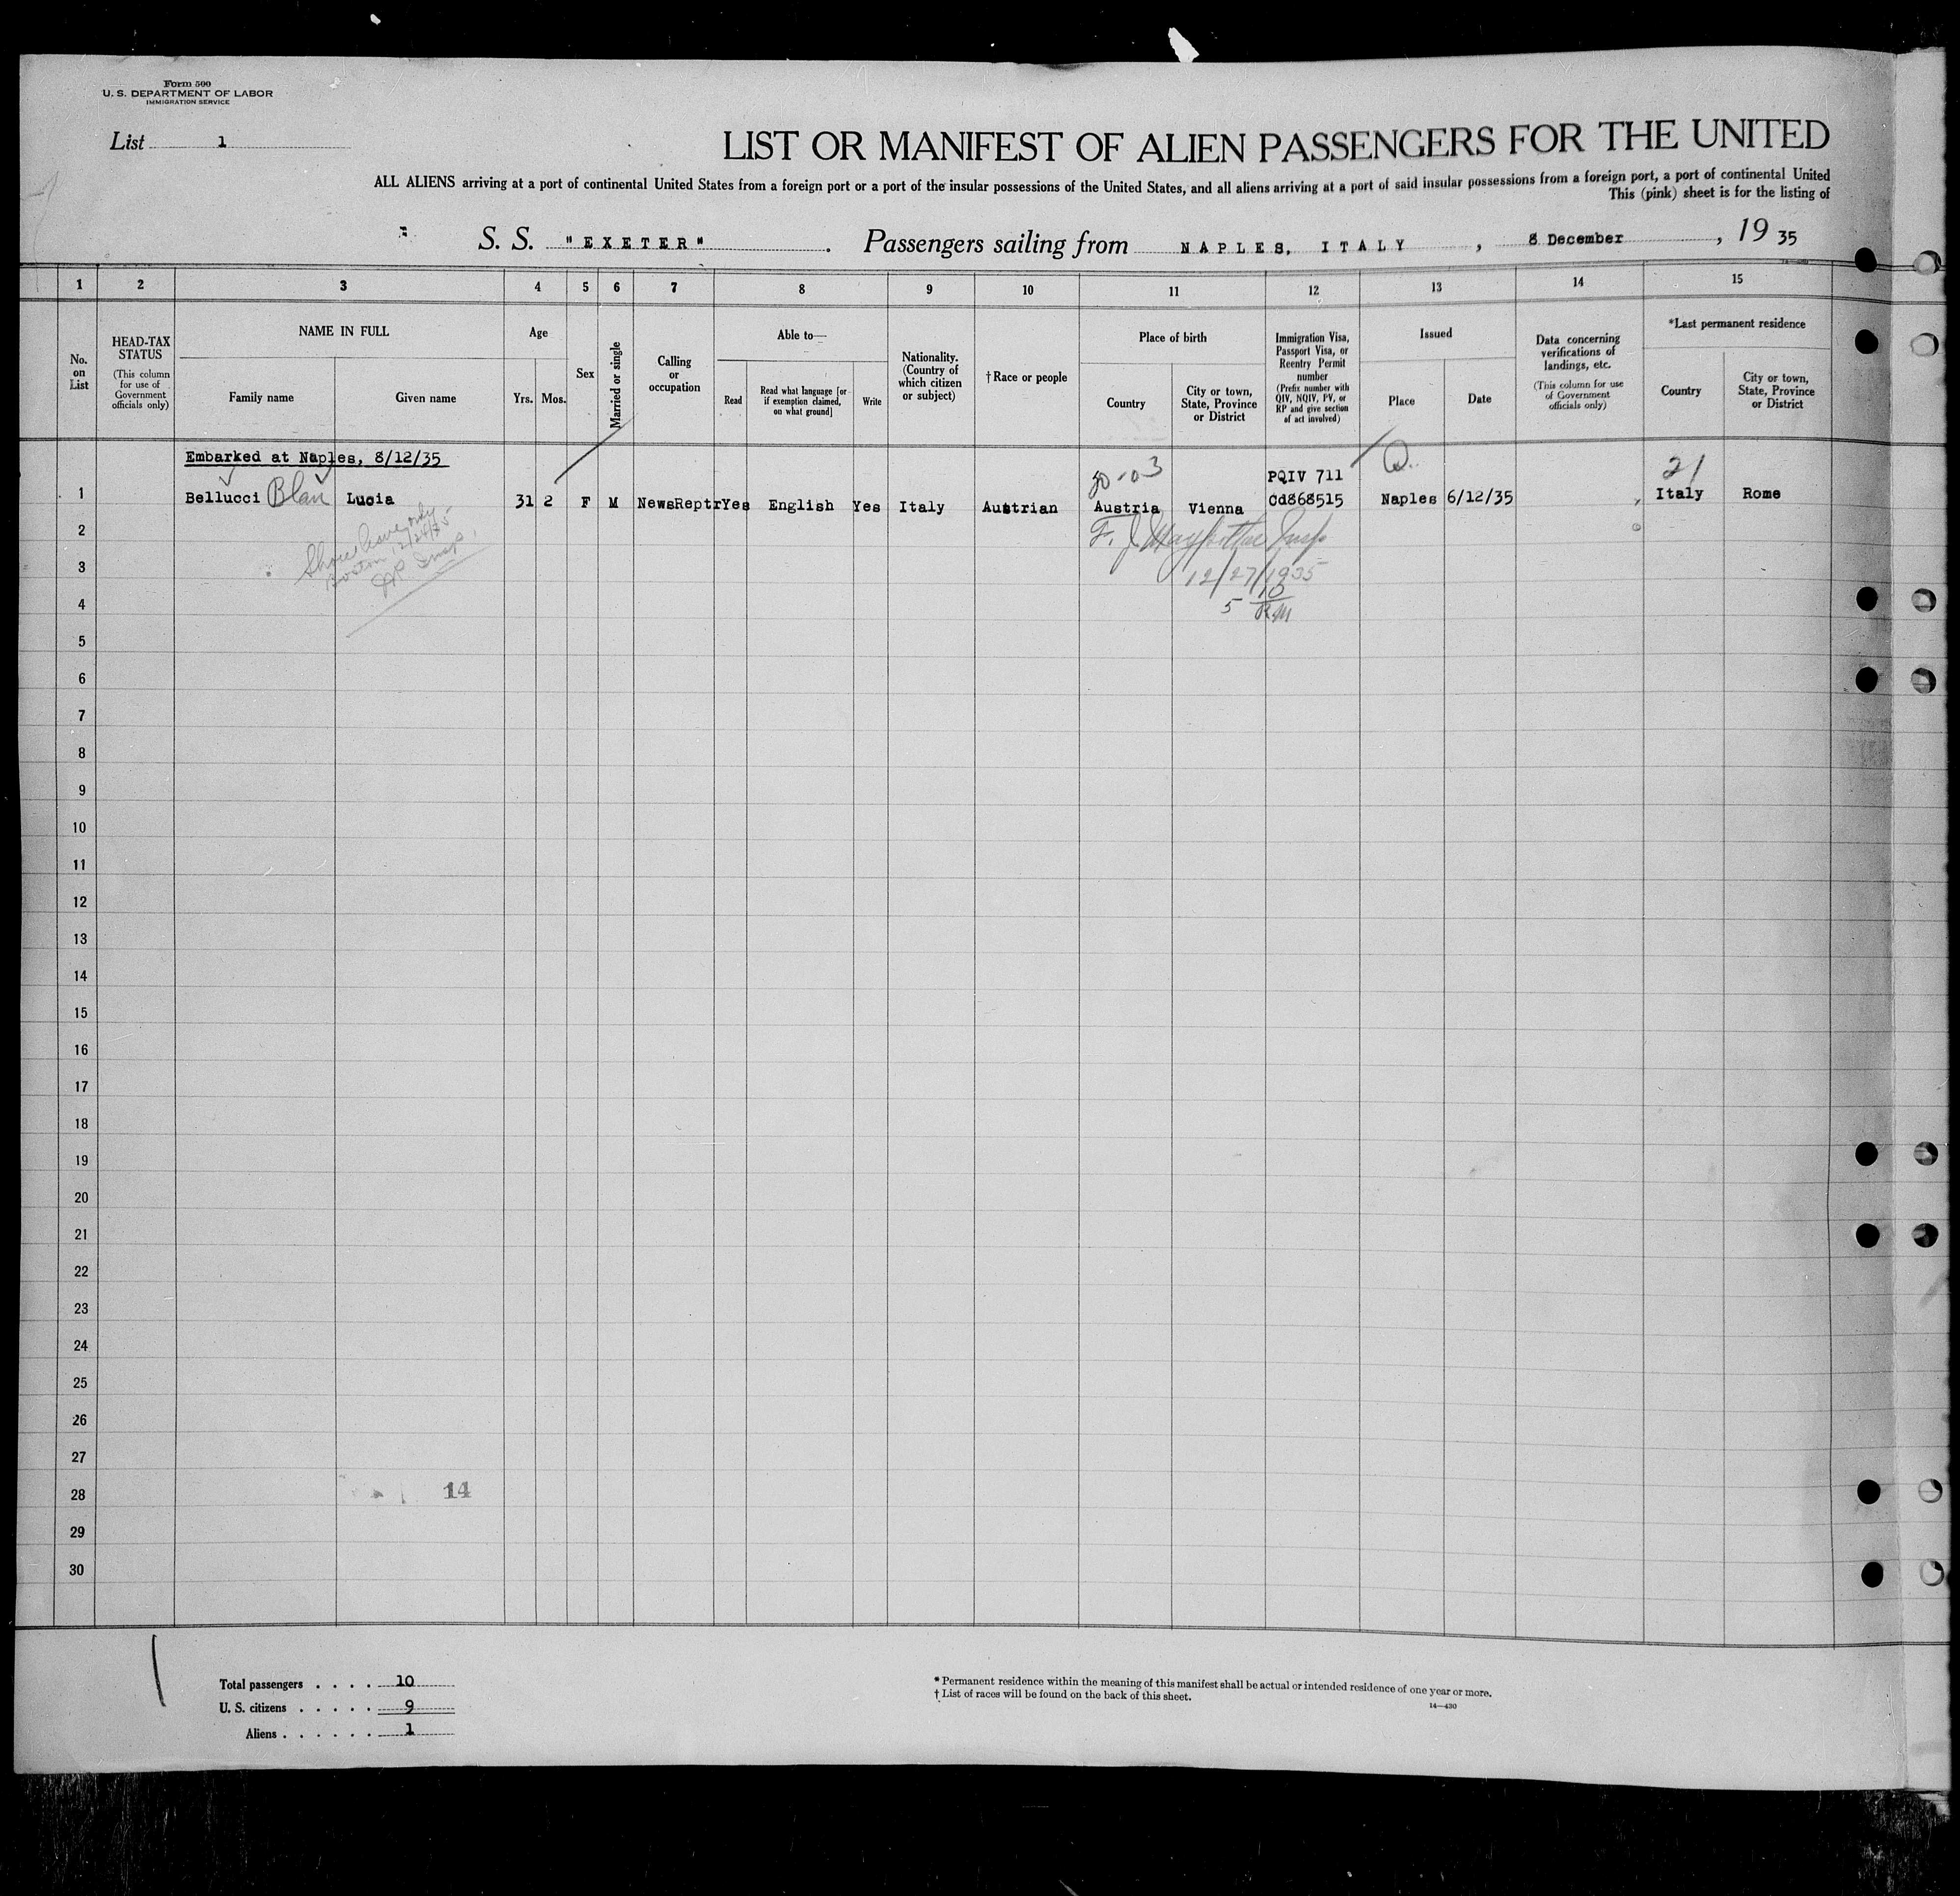 Form 500
U. S. DEPARTMENT OF LABOR
IMMIGRATION SERVICE
List 1
LIST OR MANIFEST OF ALIEN PASSENGERS FOR THE UNITED
ALL ALIENS arriving at a port of continental United States from a foreign port or a port of the insular possessions of the United States, and all aliens arriving at a port of said insular possessions from a foreign port, a port of continental United
This (pink) sheet is for the listing of
S. S. "EXETER" . Passengers sailing from NAPLES, ITALY , 8 December , 19 35
1 2 3 4 5 6 7 8 9 10 11 12 13 14 15
No. on List
HEAD-TAX STATUS
(This column for use of Government officials only)
NAME IN FULL
Family name
Given name
Age
Yrs. Mos.
Sex
Married or single
Calling or occupation
Able to—
Read
Read what language [or if exemption claimed, on what ground]
Write
Nationality. (Country of which citizen or subject)
†Race or people
Place of birth
Country
City or town, State, Province or District
Immigration Visa, Passport Visa, or Reentry Permit number
(Prefix number with QIV, NQIV, PV, or RP and give section of act involved)
Issued
Place
Date
Data concerning verifications of landings, etc.
(This column for use of Government officials only)
*Last permanent residence
Country
City or town, State, Province or District
Embarked at Naples, 8/12/35
PQIV 711
21
1 Bellucci Blau Lucia 31 2 F M NewsReptr Yes English Yes Italy Austrian Austria Vienna Cd868515 Naples 6/12/35 Italy Rome
Shore leave only
Boston 12/24/35
Insp.
12/27/1935
2
3
4
5
6
7
8
9
10
11
12
13
14
15
16
17
18
19
20
21
22
23
24
25
26
27
28 14
29
30
Total passengers . . . . 10
U. S. citizens . . . . . 9
Aliens . . . . . . 1
* Permanent residence within the meaning of this manifest shall be actual or intended residence of one year or more.
† List of races will be found on the back of this sheet.
14—430